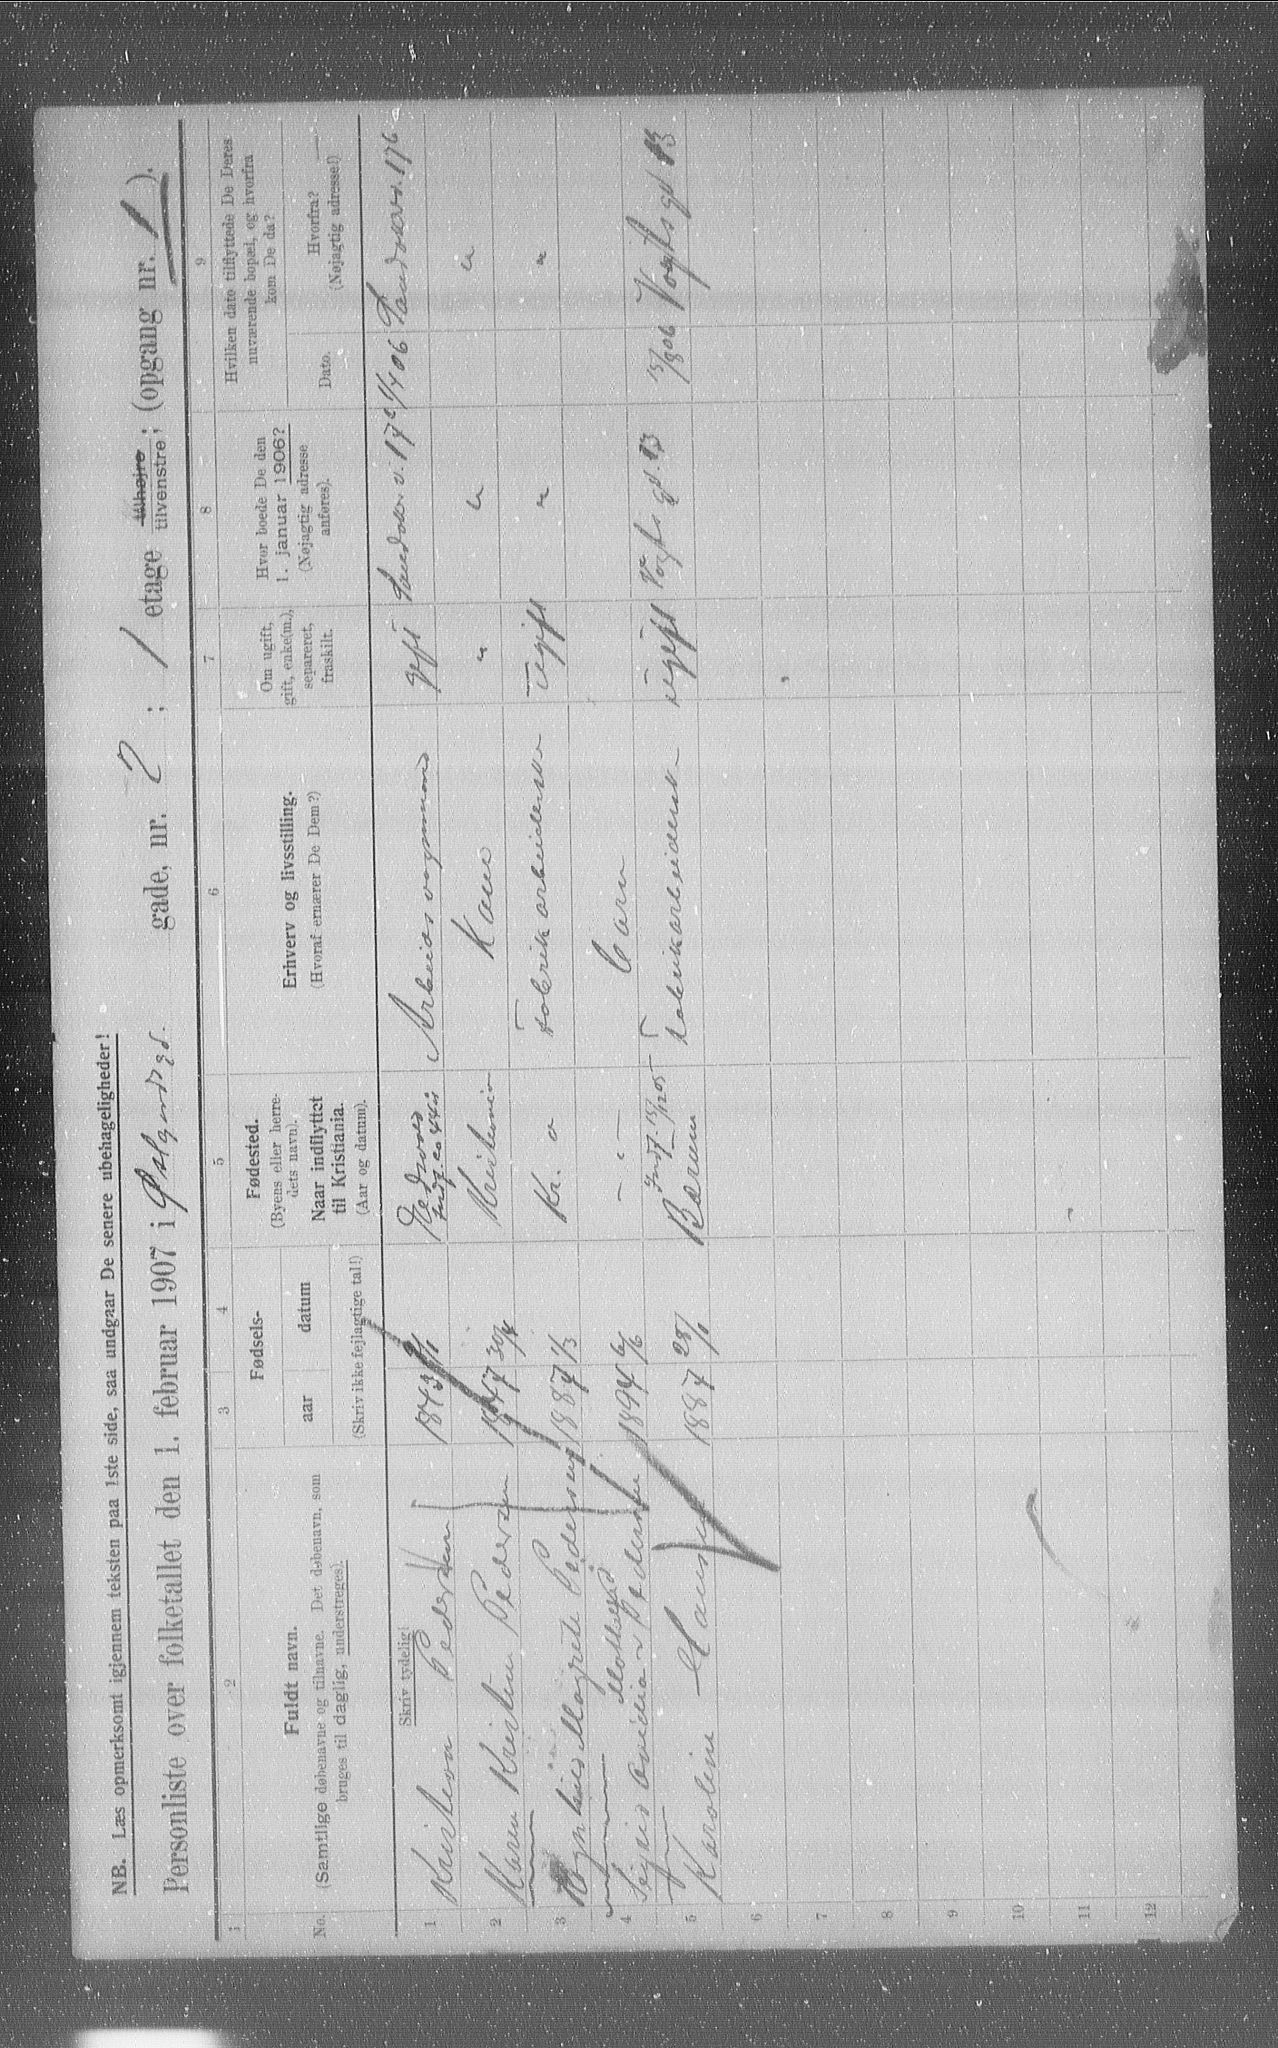 NB. Læs opmerksomt igjennem teksten paa 1ste side, saa undgaar De senere ubehageligheder!
Personliste over folketallet den 1. februar 1907 i gade, nr. 2 ; 1 etage tilhøjre tilvenstre; (opgang nr. 1).
1 2 3 4 5 6 7 8 9
No.
Fuldt navn.
(Samtlige døbenavne og tilnavne. Det døbenavn, som
bruges til daglig, understreges).
Fødsels-
aar datum
(Skriv ikke fejlagtige tal!)
Fødested.
(Byens eller herre-
dets navn).
Naar indflyttet
til Kristiania.
(Aar og datum).
Erhverv og livsstilling.
(Hvoraf ernærer De Dem?)
Om ugift,
gift, enke(m.),
separeret,
fraskilt.
Hvor boede De den
1. januar 1906?
(Nøjagtig adresse
anføres).
Hvilken dato tilflyttede De Deres
nuværende bopæl, og hvorfra
kom De da?
Dato.
Hvorfra?
(Nøjagtig adresse!)
Skriv tydelig!
1 Pedersen 1843 gift
2 Karen Kristine Pedersen 1847 30/4 Kristiania Kone " " "
3 Magrete Pedersen 1887 1/3 Kr. a Fabrikarbeiderske Ugift " "
4 Pedersen 1894 6/6 - " - Barn
5 Karoline Hansen 1887 28/1 Bærum Indf. 15/12 05 Fabrikarbeiderske ugift Vogts gd. 13 15/8 06 Vogts gd 13
6
7
8
9
10
11
12